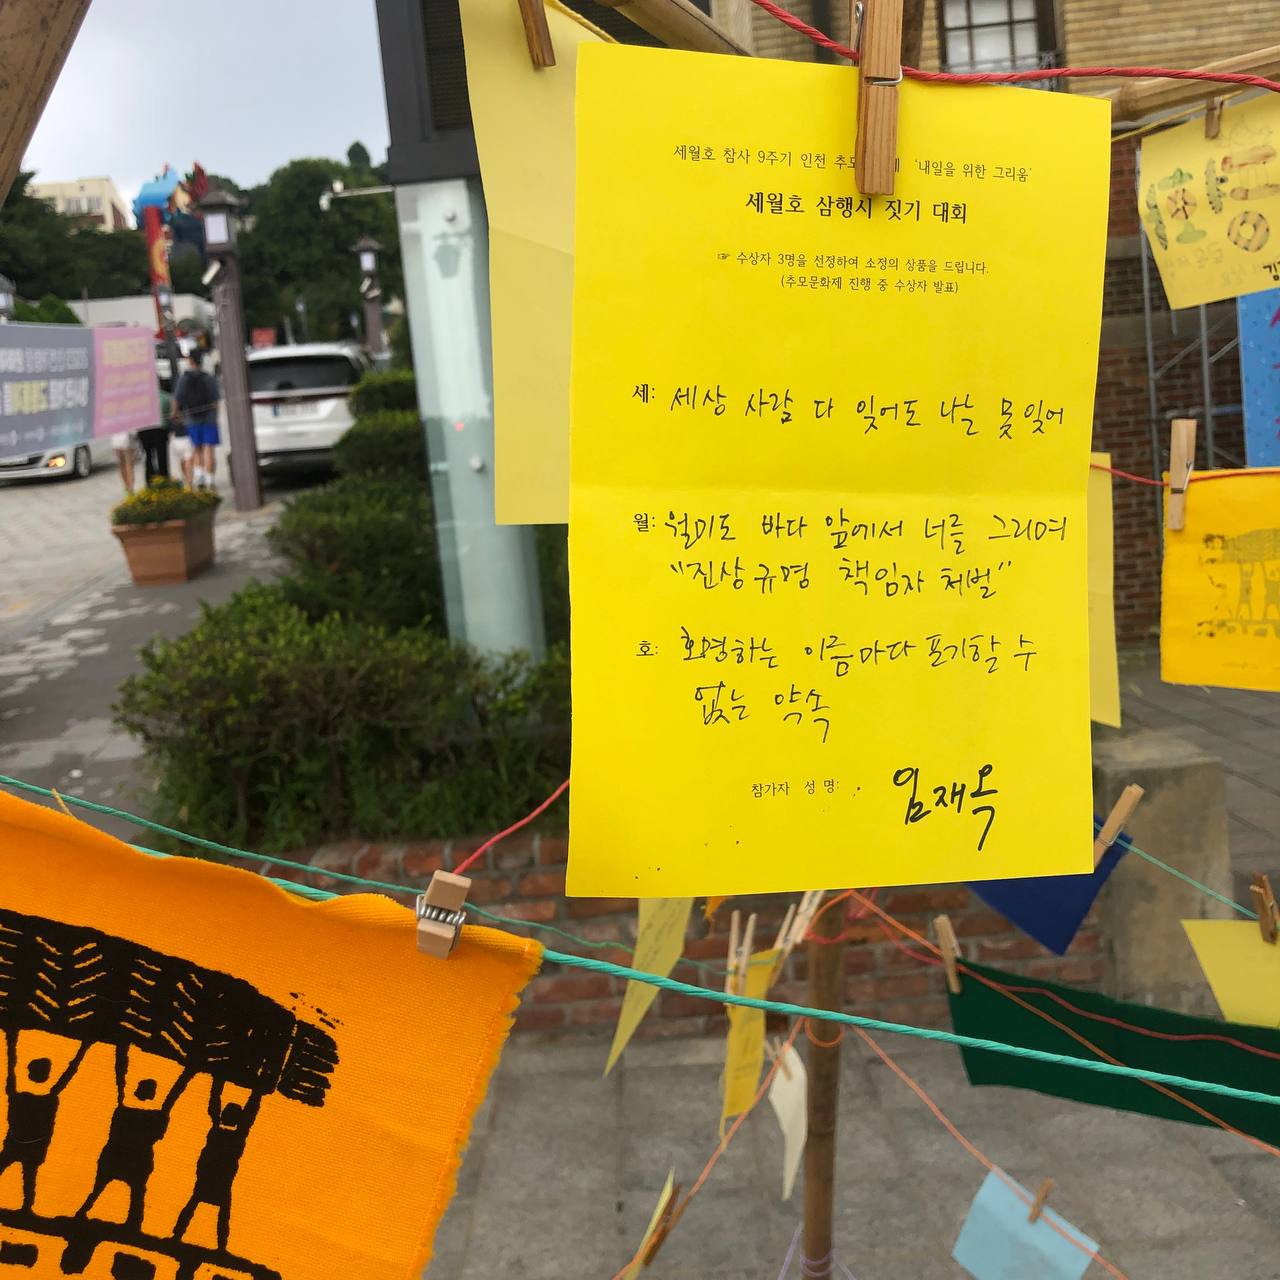 세월호 참사 9주기 인천 추모 제 '내일을 위한 그리움'
세월호 삼행시 짓기 대회
☞ 수상자 3명을 선정하여 소정의 상품을 드립니다.
(추모문화제 진행 중 수상자 발표)
세: 세상 사람 다 잊어도 나는 못 잊어
월: 월미도 바다 앞에서 너를 그리며
"진상규명 책임자 처벌"
호: 호명하는 이름마다 포기할 수
없는 약속
참가자 성명: 임재옥